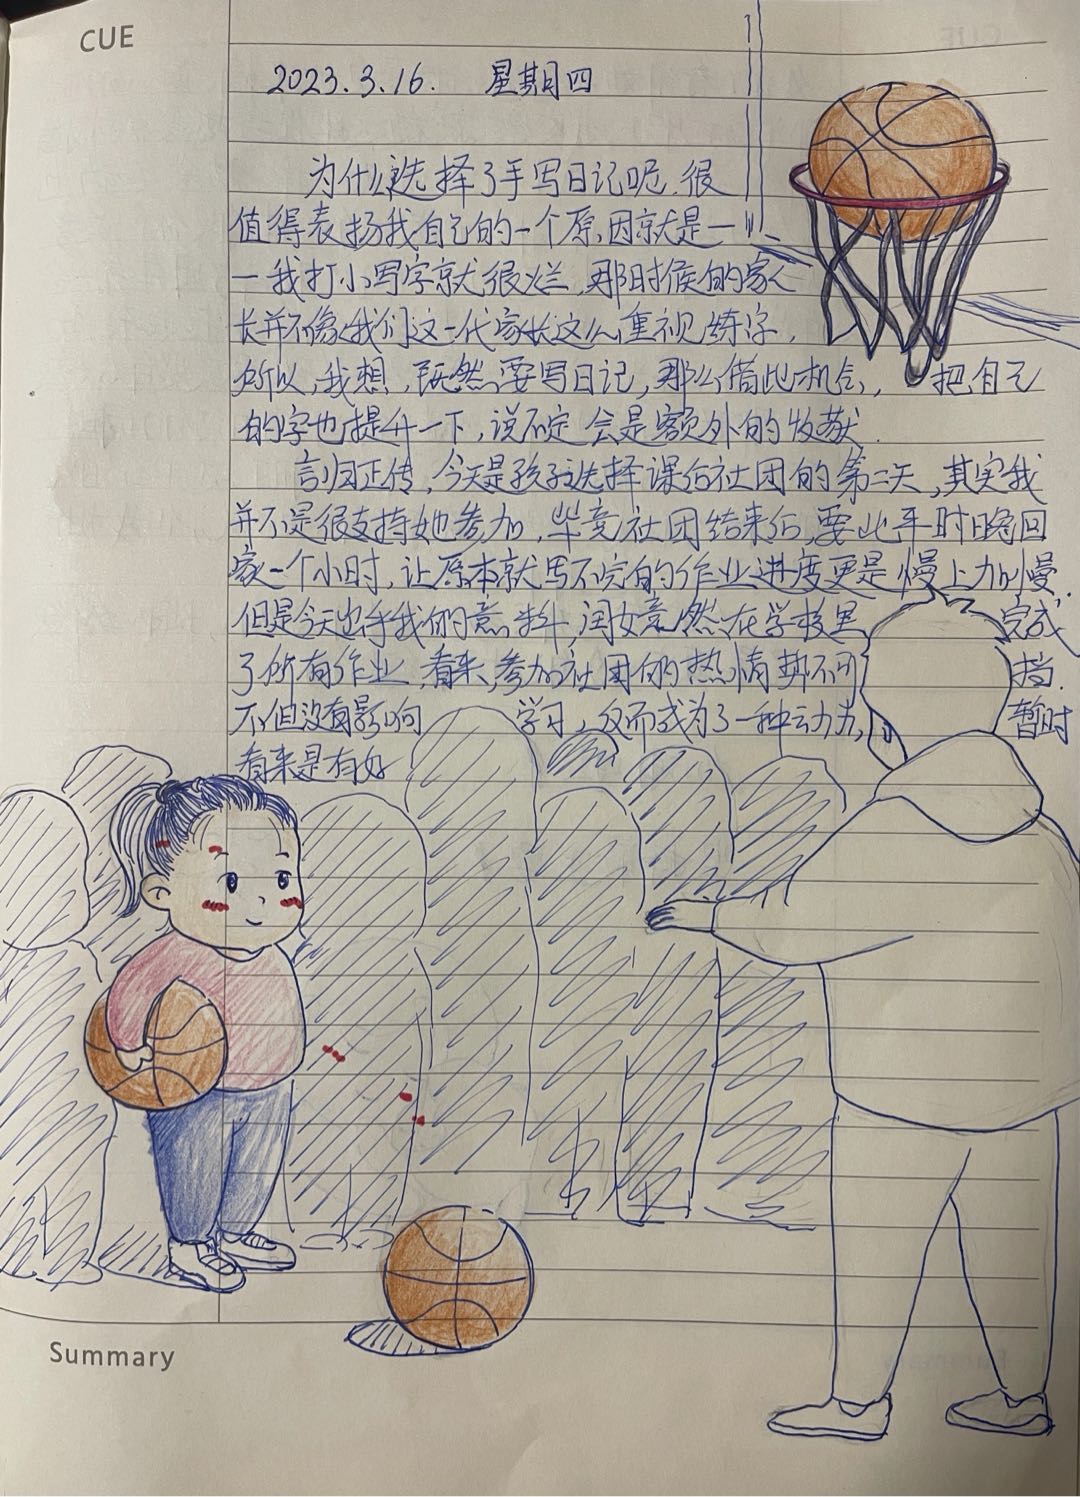 CUE
2023.3.16. 星期四
为什么选择了手写日记呢,很
值得表扬我自己的一个原因就是一
一我打小写字就很烂,那时候的家
长并不像我们这一代家长这么重视练字,
所以,我想,既然要写日记,那么借此机会,把自己
的字也提升一下,说不定会是额外的收获.
言归正传,今天是孩子选择课后社团的第二天,其实我
并不是很支持她参加,毕竟社团结束后,要比平时晚回
家一个小时,让原本就写不完的作业进度更是慢上加慢.
但是今天出乎我们的意料,闺女竟然在学校里完成
了所有作业,看来,参加社团的热情势不可挡.
不但没有影响学习,反而成为了一种动力,暂时
看来是有好
Summary